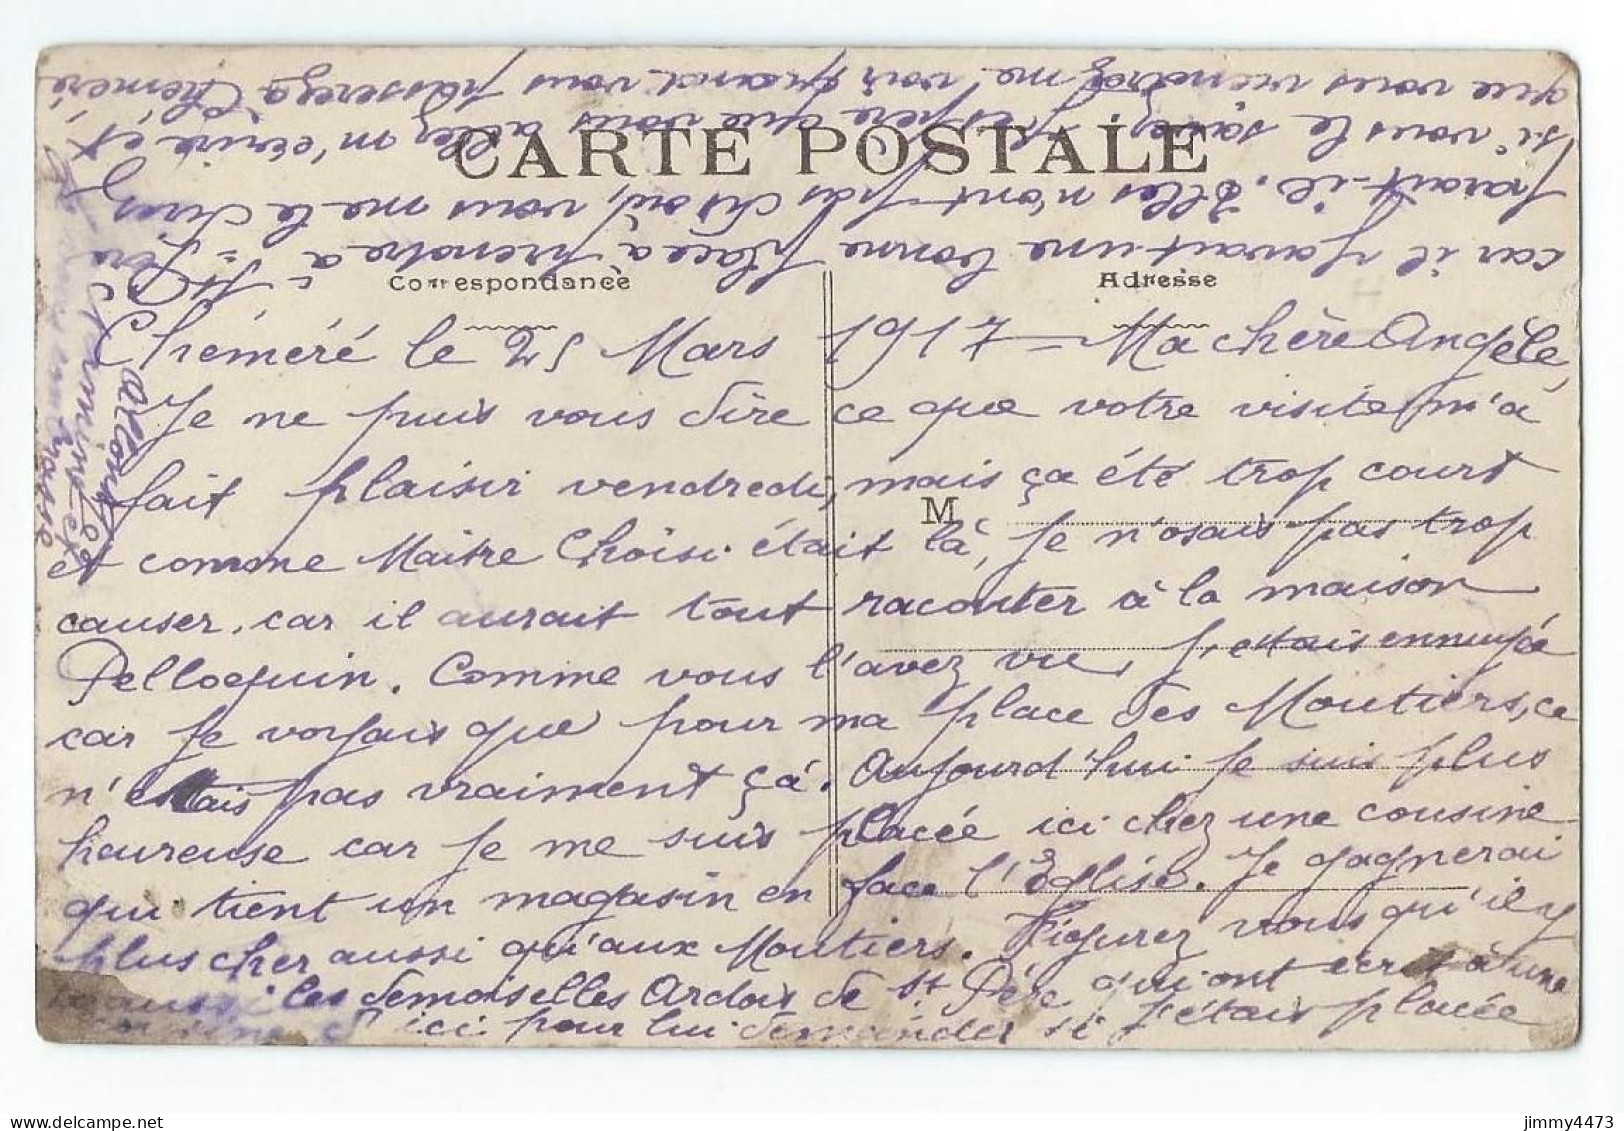 CARTE POSTALE
Correspondance
Adresse
M
Chéméré le 25 Mars 1917 - Ma chère Angèle,
Je ne puis vous dire ce que votre visite m'a
fait plaisir vendredi, mais ça été trop court
et comme Maitre Choisi était là, je n'osais pas trop
causer, car il aurait tout raconter à la maison
Pelloquin. Comme vous l'avez vu, j'ettais ennuyée
car je voyais que pour ma place des Moutiers, ce
n'ettais pas vraiment çà. Aujourd'hui je suis plus
heureuse car je me suis placée ici chez une cousine
qui tient un magasin en face l'Eglise. Je gagnerai
plus cher aussi qu'aux Moutiers. Figurez vous qu'il y
a aussi les demoiselles Ardois de St Père qui ont écrit à une
cousine d'ici pour lui demander si j'étais placée
car il y avait une bonne place à prendre à St=Père
parait-il. Elles n'ont pas dit où, vous me le direz
si vous le savez, j'espère que vous allez m'écrire et
que vous viendrez me voir quand vous passerez à Chéméré
Allons
je termine et
vous embrasse
jimmy4473